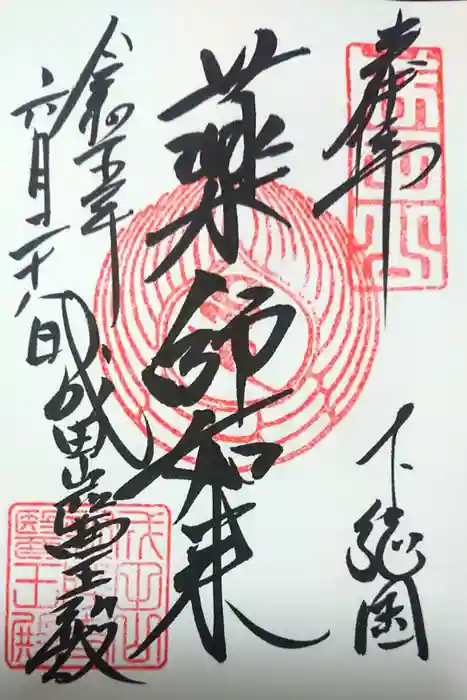 奉拝
下総国
薬師如来
成田山醫王殿
令和五年
六月二十八日
成田山